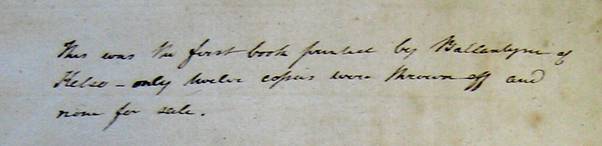 This was the first book printed by Ballantyne of
Kelso - only twelve copies were thrown off and
none for sale.